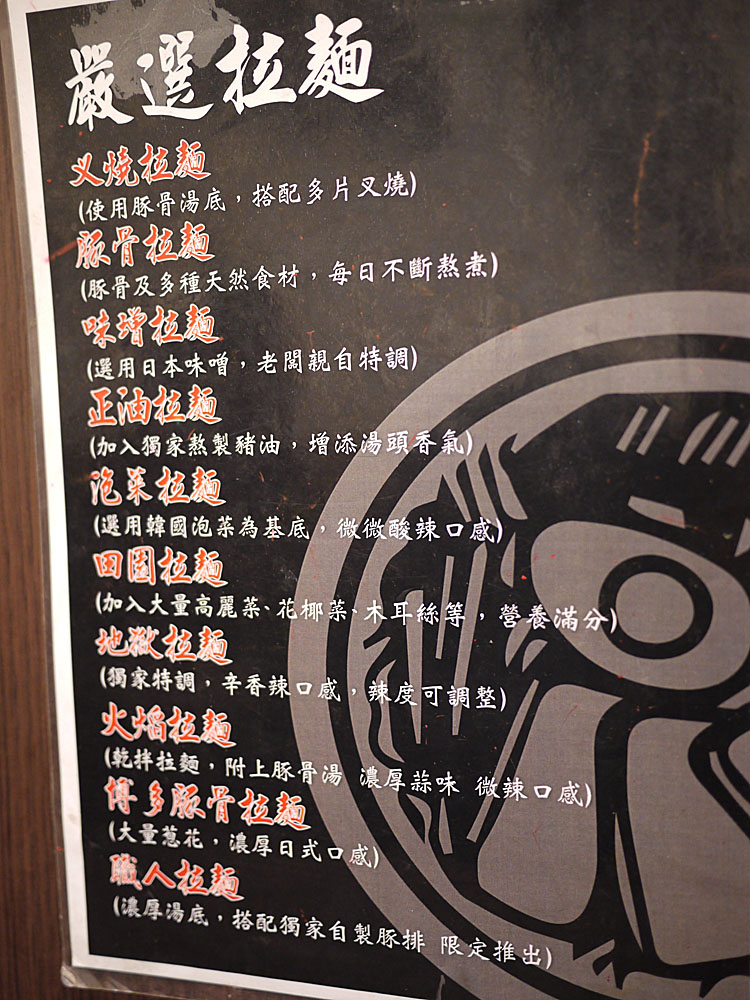 嚴選拉麵
叉燒拉麵
(使用豚骨湯底，搭配多片叉燒)
豚骨拉麵
(豚骨及多種天然食材，每日不斷熬煮)
味增拉麵
(選用日本味噌，老闆親自特調)
正油拉麵
(加入獨家熬製豬油，增添湯頭香氣)
泡菜拉麵
(選用韓國泡菜為基底，微微酸辣口感)
田園拉麵
(加入大量高麗菜、花椰菜、木耳絲等，營養滿分)
地獄拉麵
(獨家特調，辛香辣口感，辣度可調整)
火焰拉麵
(乾拌拉麵，附上豚骨湯 濃厚蒜味 微辣口感)
博多豚骨拉麵
(大量蔥花，濃厚日式口感)
職人拉麵
(濃厚湯底，搭配獨家自製豚排 限定推出)